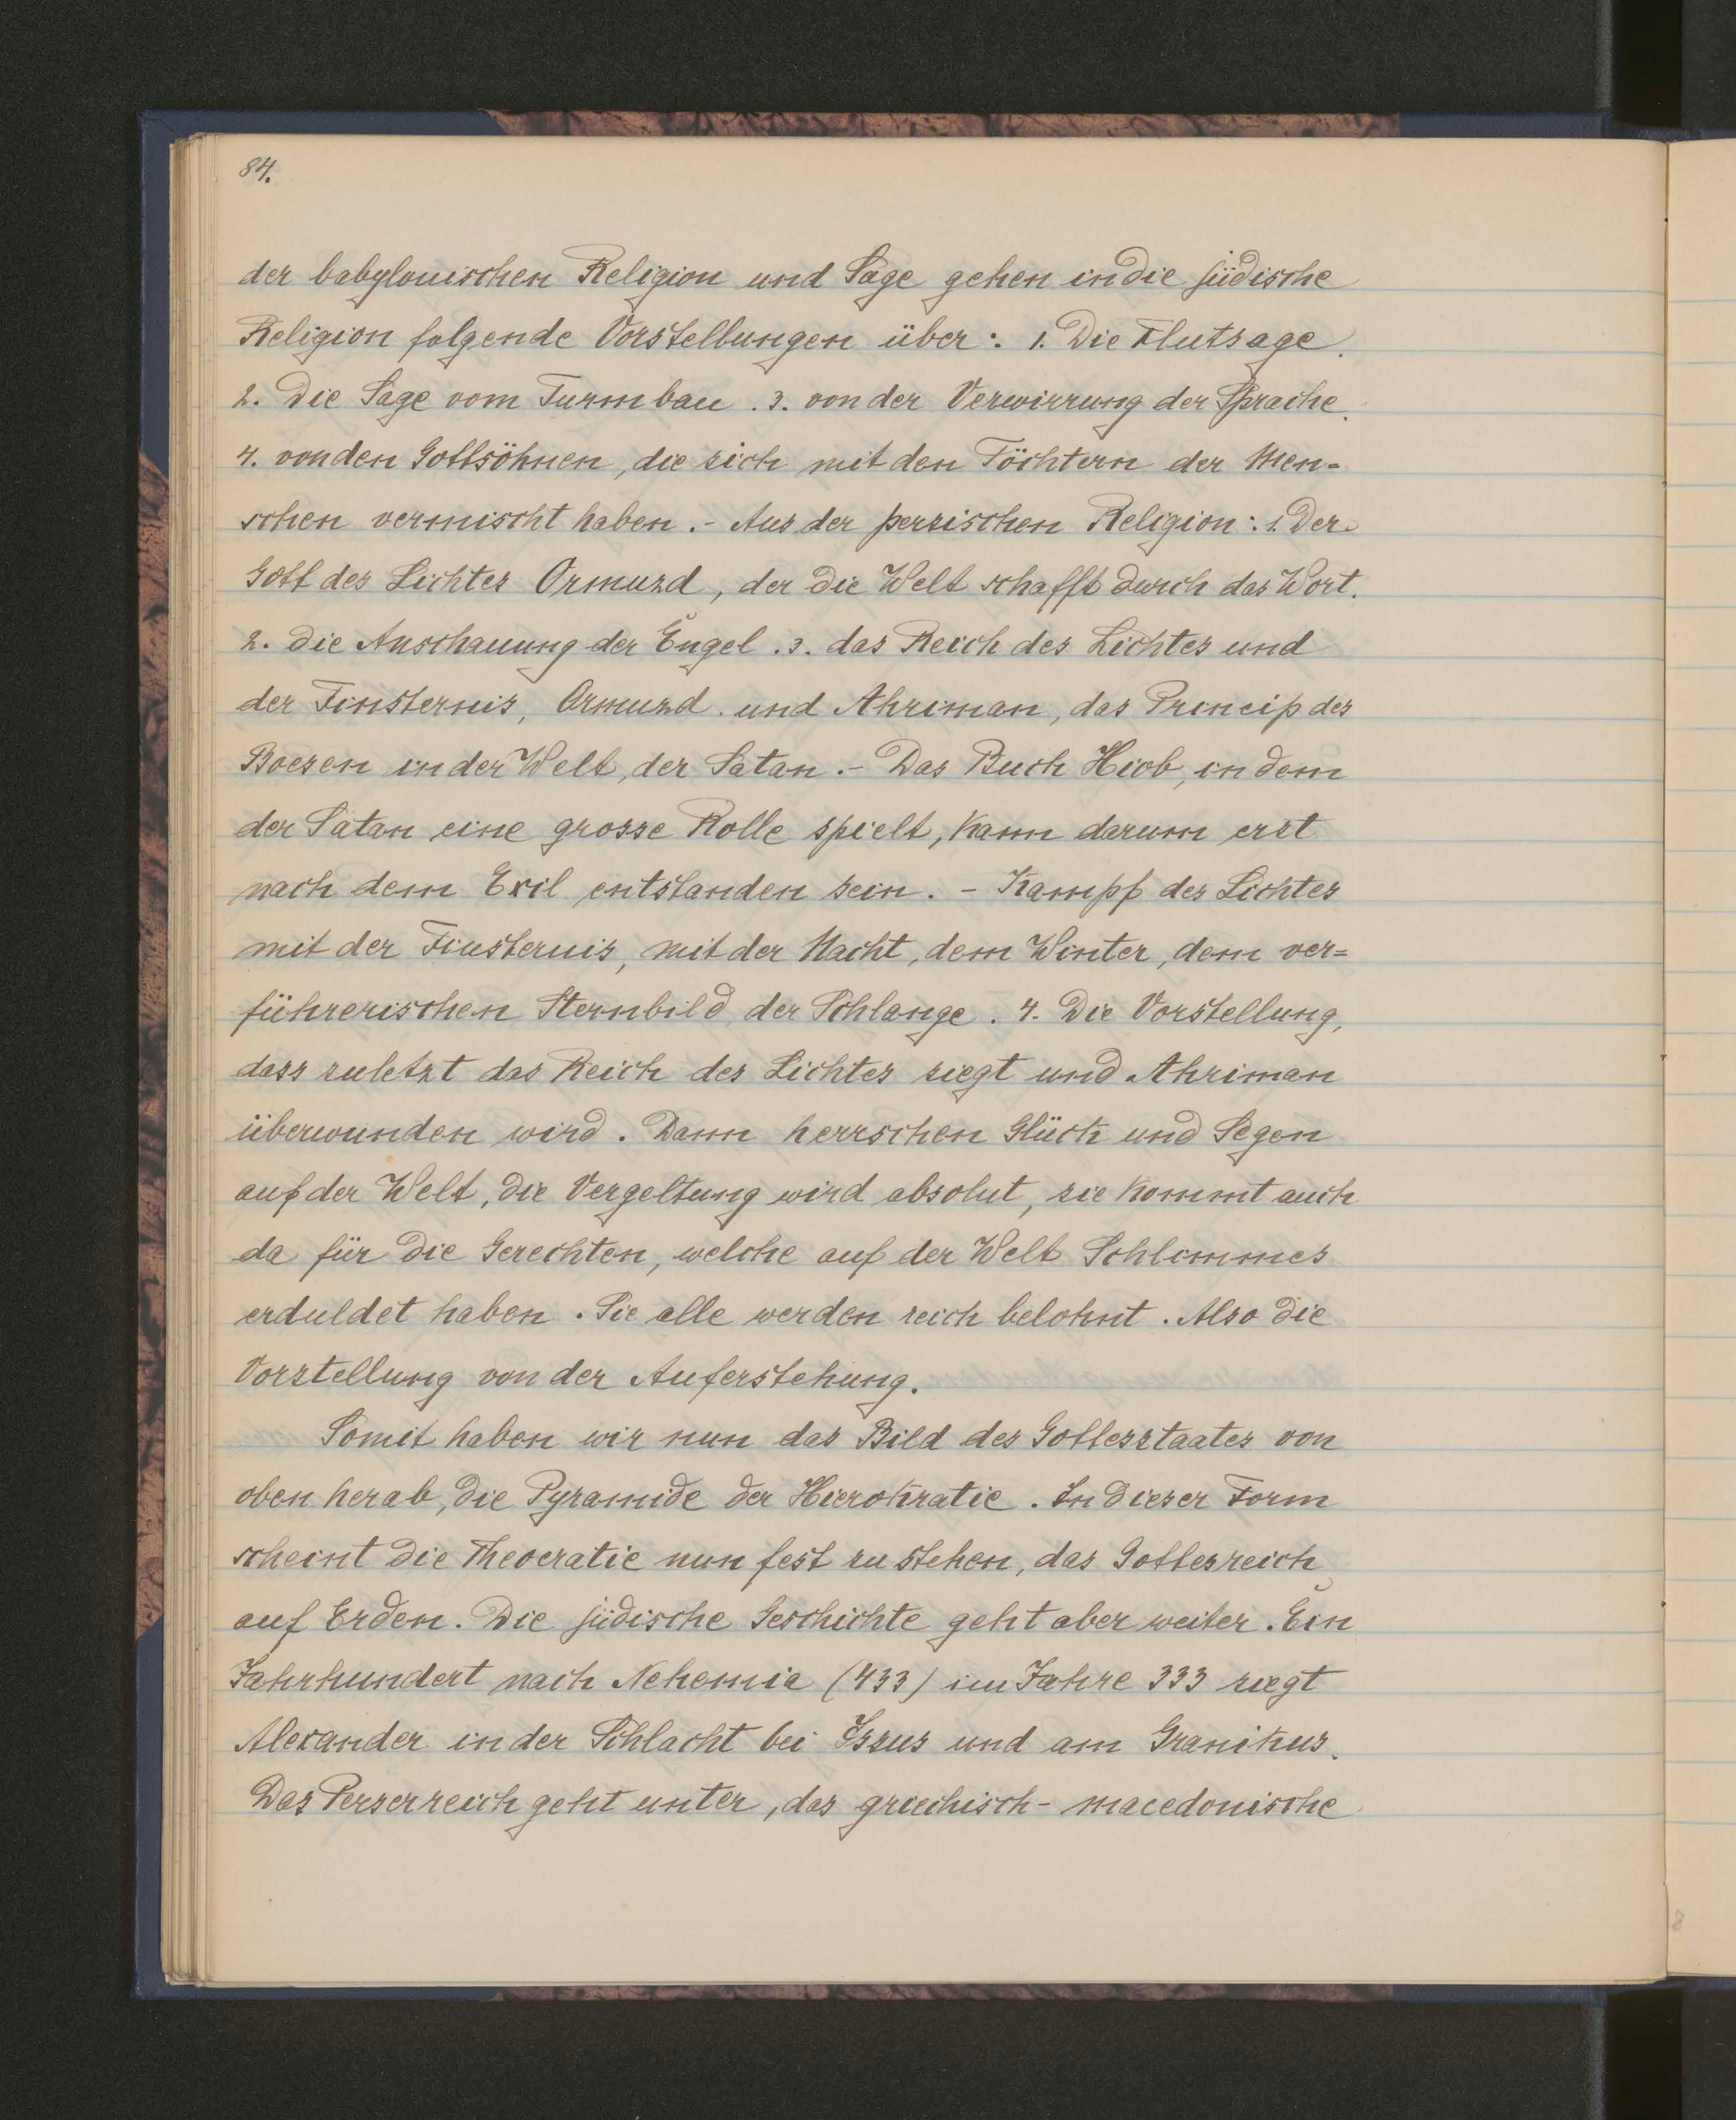 84.
der babylonischen Religion und Sage gehen in die jüdische
Religion folgende Vorstellungen über: 1. Die Flutsage.
2. Die Sage vom Turmbau. 3. von der Verwirrung der Sprache.
4. von den Gottsöhnen, die sich mit den Töchtern der Men-
schen vermischt haben. - Aus der persischen Religion: 1. Der
Gott des Lichtes Ormuzd, der die Welt schafft durch das Wort.
2. Die Anschauung der Engel. 3. das Reich des Lichtes und
der Finsternis, Ormuzd und Ahriman, das Princip des
Boesen in der Welt, der Satan. - Das Buch Hiob, in dem
der Satan eine grosse Rolle spielt, kann darum erst
nach dem Exil entstanden sein. - Kampf des Lichtes
mit der Finsternis, mit der Nacht, dem Winter, dem ver=
führerischen Sternbild der Schlange. 4. Die Vorstellung,
dass zuletzt das Reich des Lichtes siegt und Ahriman
überwunden wird. Dann herrschen Glück und Segen
auf der Welt, die Vergeltung wird absolut, sie kommt auch
da für die Gerechten, welche auf der Welt Schlimmes
erduldet haben. Sie alle werden reich belohnt. Also die
Vorstellung von der Auferstehung.
Somit haben wir nun das Bild des Gottesstaates von
oben herab, die Pyramide der Hierokratie. In dieser Form
scheint die Theocratie nun fest zu stehen, das Gottesreich
auf Erden. Die jüdische Geschichte geht aber weiter. Ein
Jahrhundert nach Nehemia (433) im Jahre 333 siegt
Alexander in der Schlacht bei Issus und am Granikus.
Das Perserreich geht unter, das griechisch-macedonische
8